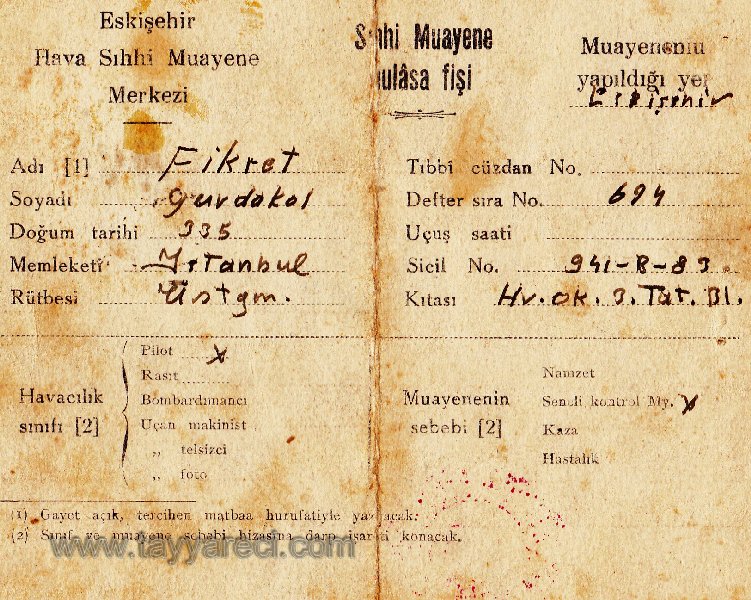 Eskişehir
Hava Sıhhi Muayene
Merkezi
Sıhhi Muayene
hulâsa fişi
Muayenenin
yapıldığı yer
Eskişehir
Adı [1] Fikret
Soyadı Gürdakol
Doğum tarihi 335
Memleketi İstanbul
Rütbesi Üstgm.
Tıbbî cüzdan No.
Defter sıra No. 694
Uçuş saati
Sicil No. 941-B-83
Kıtası Hv. ok. 3. Tat. Bl.
Havacılık
sınıfı [2]
Pilot x
Rasıt
Bombardımancı
Uçan makinist
„ telsizci
„ foto
Muayenenin
sebebi [2]
Namzet
Seneli kontrol My. x
Kaza
Hastalık
(1) Gayet açık, tercihen matbaa hurufatiyle yazılacak.
(2) Sınıf ve muayene sebebi hizasına darp işareti konacak.
www.tayyareci.com